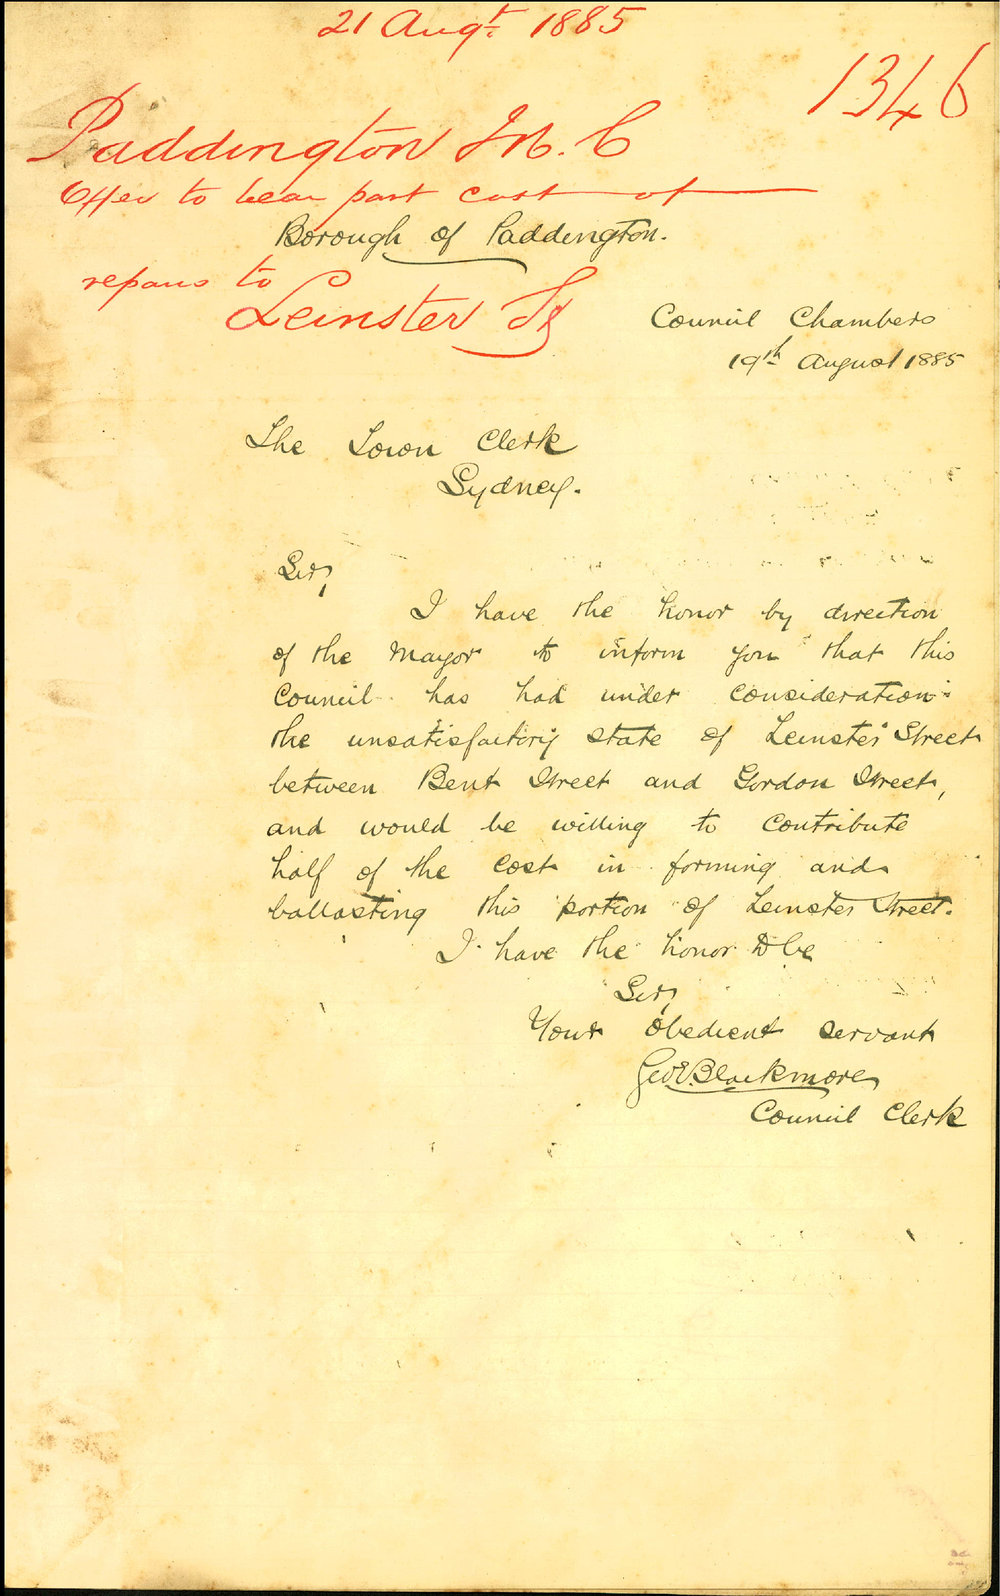 21 Augt. 1885
1346
Paddington M. C
Offer to bear part cost of
Borough of Paddington.
repairs to
Leinster St
Council Chambers
19th August 1885
The Town Clerk
Sydney.
Sir,
I have the honor by direction
of the Mayor to inform you that this
Council has had under consideration
the unsatisfactory state of Leinster Street
between Bent Street and Gordon Street,
and would be willing to contribute
half of the cost in forming and
ballasting this portion of Leinster Street.
I have the honor to be
Sir,
Your obedient servant
Geo E. Blackmore
Council Clerk